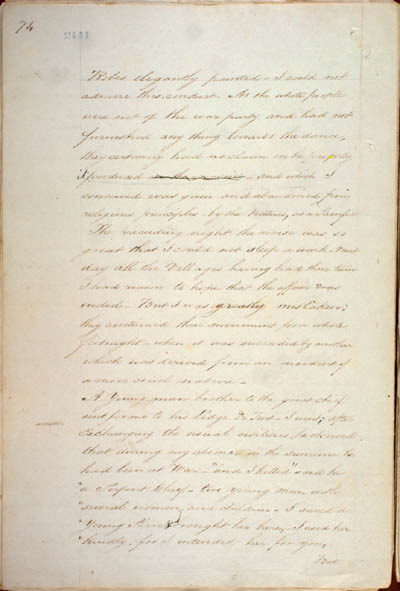 74
Robes elegantly painted - I could not
admire this conduct - As the white people
were not of the war party and had not
furnished any thing towards the dance,
they certainly had no claim on the property
produced - and which I
conceived was given and abandoned from
religious principles - by the Natives, as a Sacrifice
The preceding night the noise was so
great that I could not sleep a wink - Next
day all the Villages having had their turn
I had reason to hope that the affair was
ended - But I was greatly mistaken;
they continued their merriment for a whole
fortnight - when it was succeeded by another
which was derived from an incident of
a more solid nature -
A Young man brother to the great chief
sent for me to his Lodge to - I went; after
exchanging the usual civilities, he observed
that during my absence in the summer he
had been at War - "and I killed" said he
"a Serpent Chief - two young men with
"several women and children - I saved a
"Young Slave & brought her here, I used her
"kindly, for I intended her for you,
But